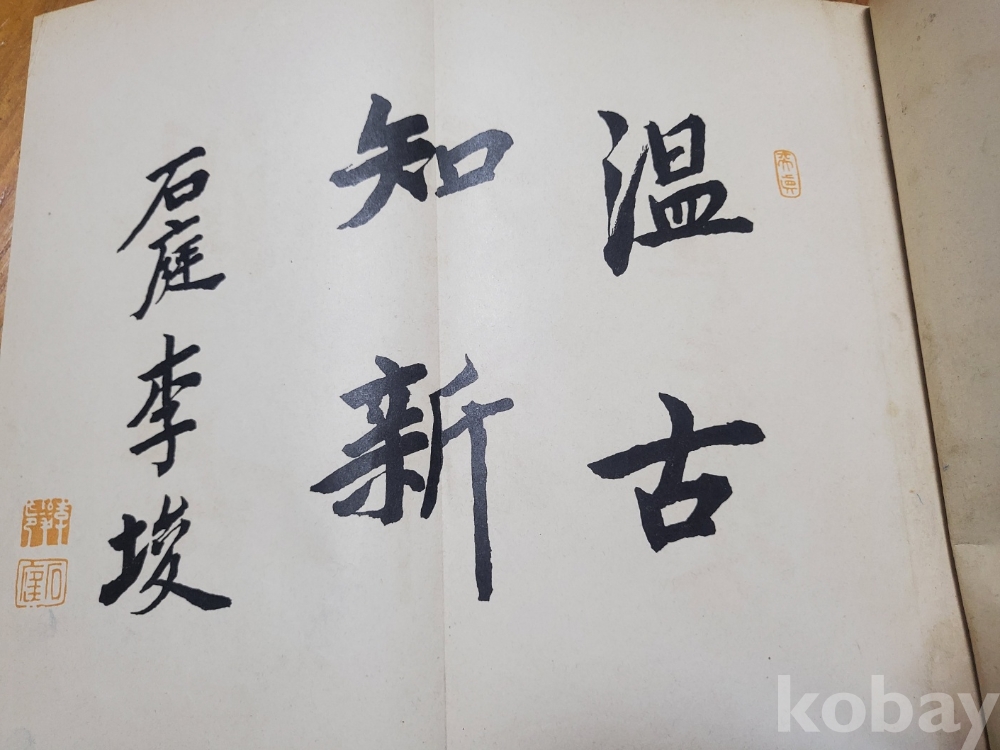 温古
知新
石庭 李埈
石庭
kobay